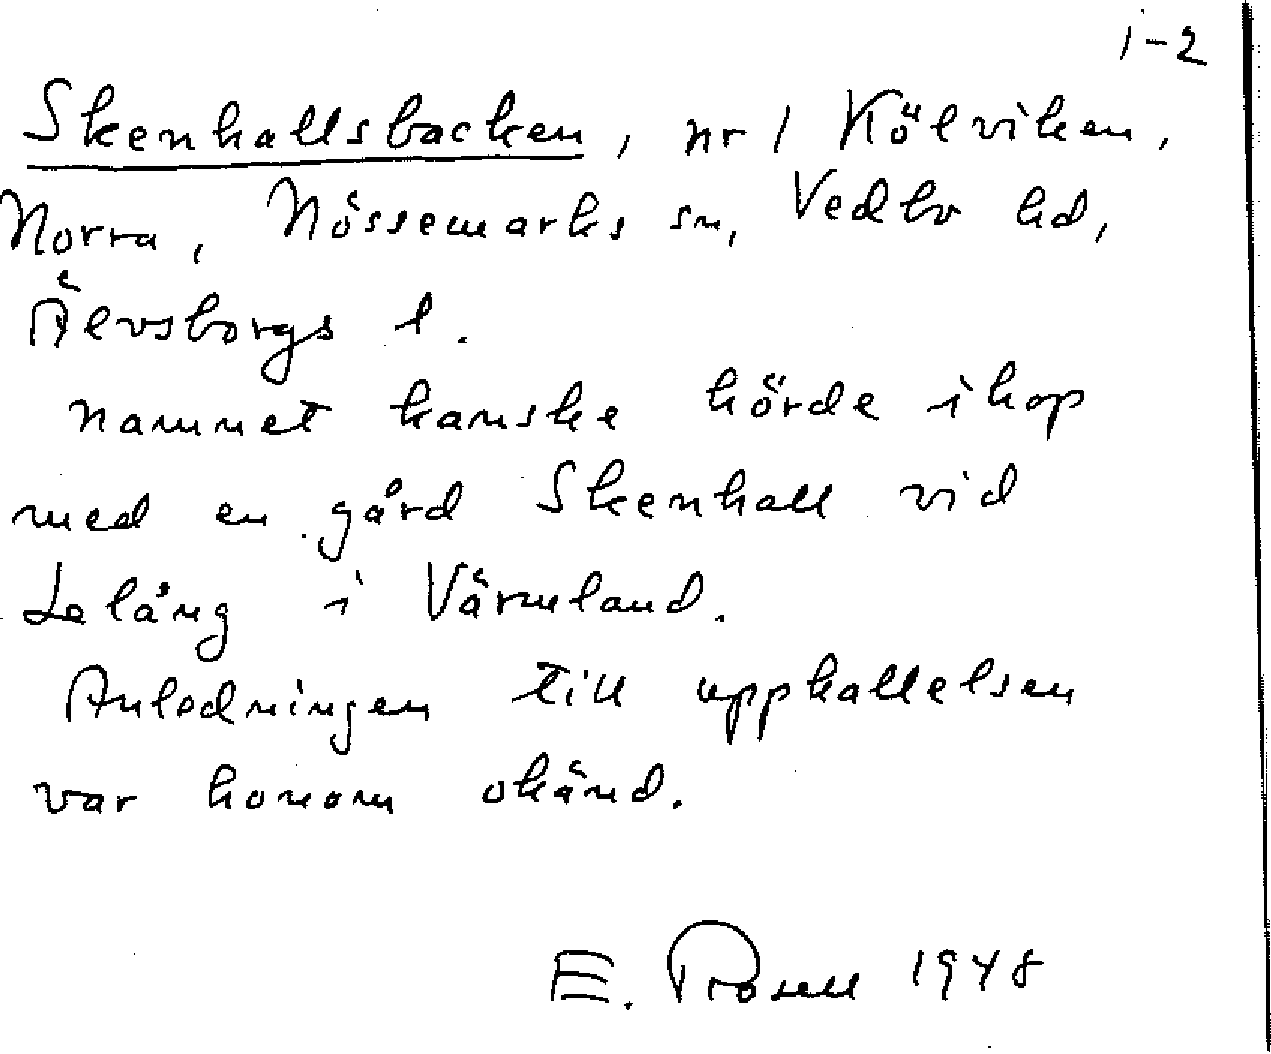 1-2
Skenhallsbacken, nr 1 Kölviken,
Norra, Nössemarks sn, Vedbo hd,
Älvsborgs l.
Namnet kanske hörde ihop
med en gård Skenhall vid
Lelång i Värmland.
Anledningen till uppkallelsen
var honom okänd.
E. Rosell 1948